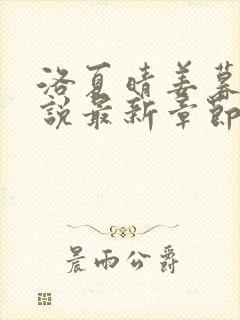 洛夏晴姜暮
説最新章節
晨雨公爵